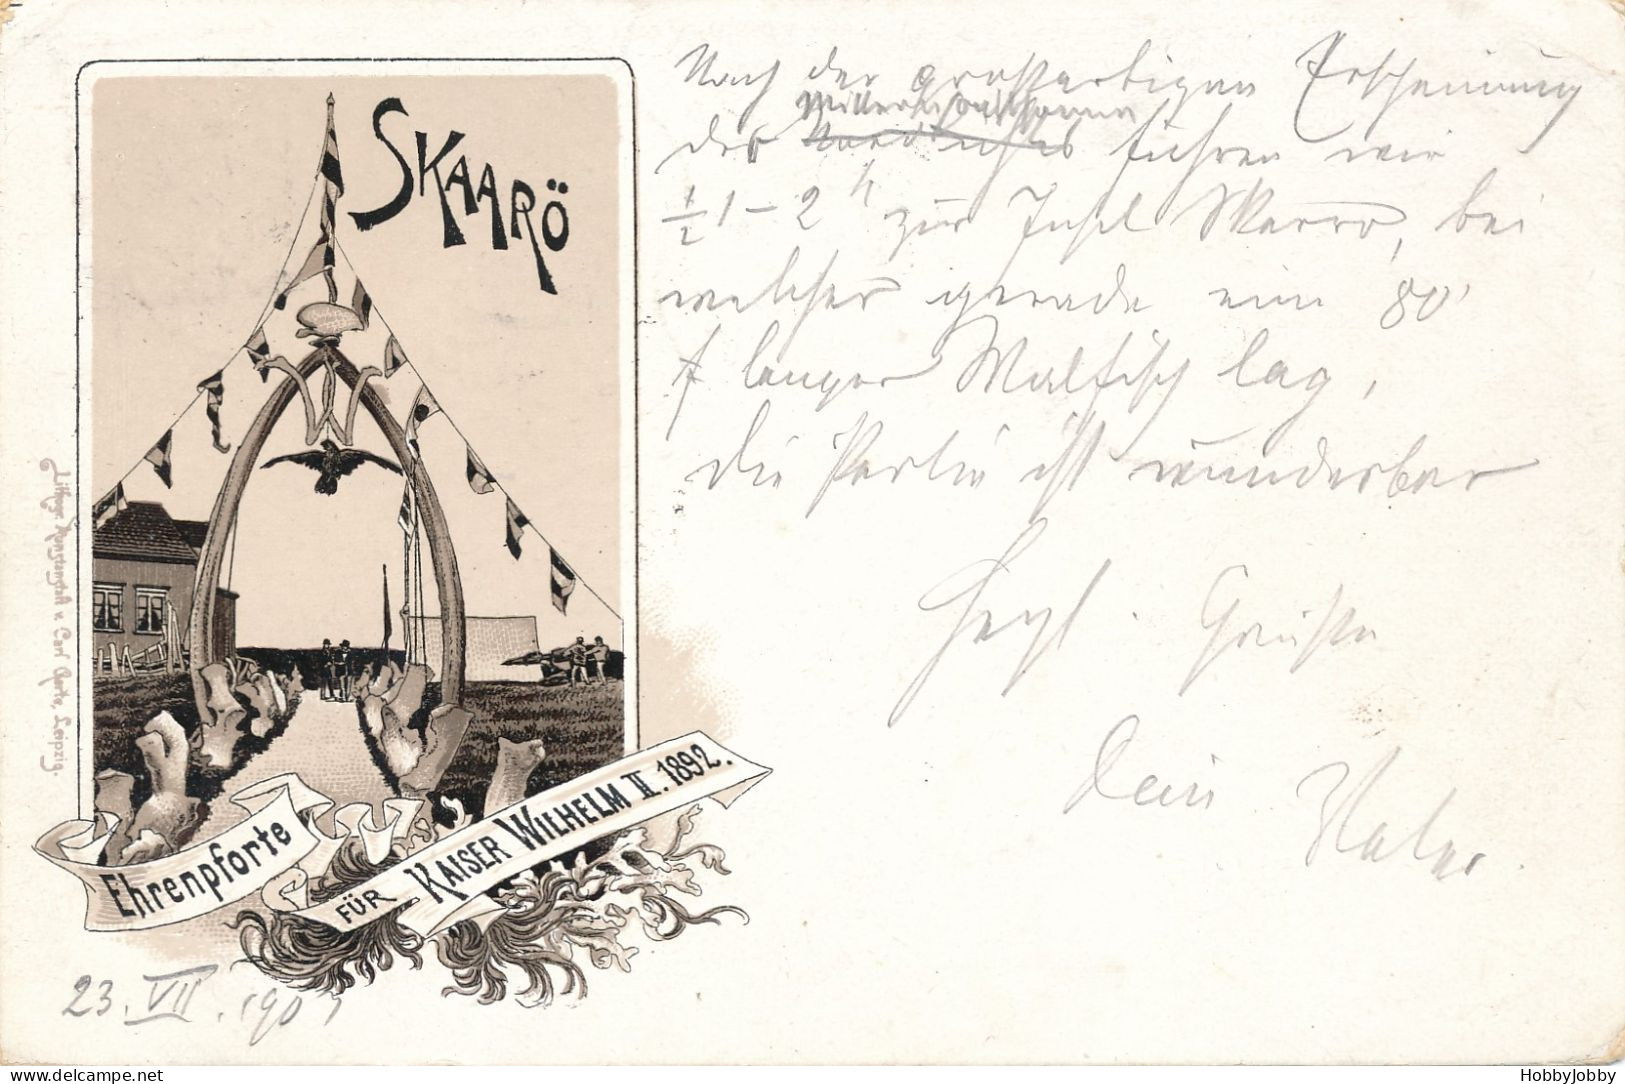 SKAARÖ
Nach der großartigen Erscheinung
Mitternachtssonne
der Nordlichtes fuhren wir
½1-2 h zur Insel Skarro, bei
welcher gerade ein 80'
langer Walfisch lag,
die Partie ist wunderbar
Herzl. Grüße
Dein Vater.
Lithogr. Kunstanstalt v. Carl Garte, Leipzig.
Ehrenpforte
FÜR KAISER WILHELM II. 1892.
23. VII. 1907
delcampe.net
HobbyJobby